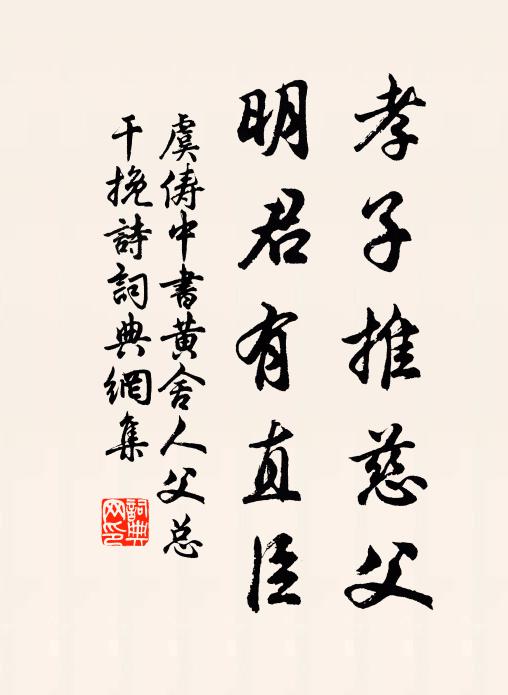 孝子推慈父
明君有直臣
虞俦中書黄舍人父总
干挽詩詞典網集
詞典
网印